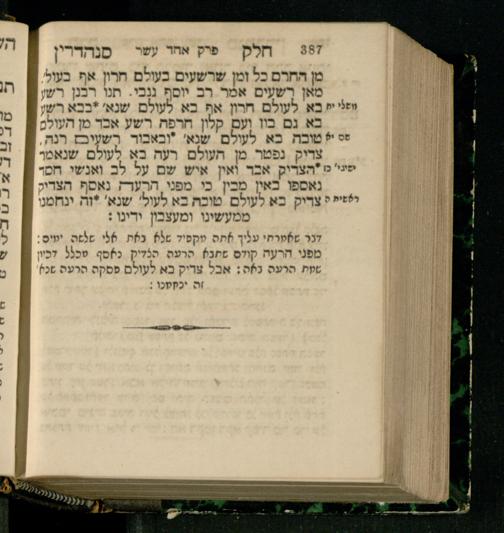 387 חלק פרק אחד עשר סנהדרין
מן החרם כל זמן שרשעים בעולם חרון אף בעול׳
מאן רשעים אמר רב יוסף גנבי. תנו רבנן רשע
משלי יח בא לעולם חרון אף בא לעולם שנא׳ *בבא רשע
בא גם בוז ועם קלון חרפה רשע אבד מן העולם
שם יא טובה בא לעולם שנא׳ *ובאבוד רשעים רנה,
צדיק נפטר מן העולם רעה בא לעולם שנאמר
ישעי׳ נז *הצדיק אבד ואין איש שם על לב ואנשי חסד
נאספו באין מבין כי מפני הרעה נאסף הצדיק
ראשית ה צדיק בא לעולם טובה בא לעול׳ שנא׳ *זה ינחמנו
ממעשינו ומעצבון ידינו :
דבר שאמרתי עליך אתה מקפיד שלא באת אלי שלשה ימים:
מפני הרעה קודם שתבא הרעה הצדיק נאסף מכלל דכיון
שמת הרעה באה: אבל צדיק בא לעולם פסקה הרעה שנא׳
זה ינחמנו :